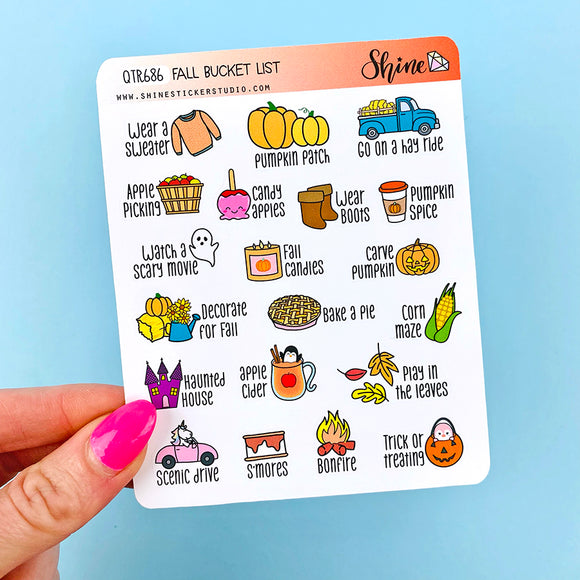 QTR686 FALL BUCKET LIST
Shine
WWW.SHINESTICKERSTUDIO.COM
Wear a
sweater
Pumpkin Patch
Go on a hay ride
Apple
Picking
Candy
apples
Wear
Boots
Pumpkin
Spice
Watch a
scary movie
Fall
Candles
Carve
Pumpkin
Decorate
for Fall
Bake a Pie
Corn
maze
Haunted
House
apple
Cider
Play in
the leaves
Scenic drive
S'mores
Bonfire
Trick or
treating